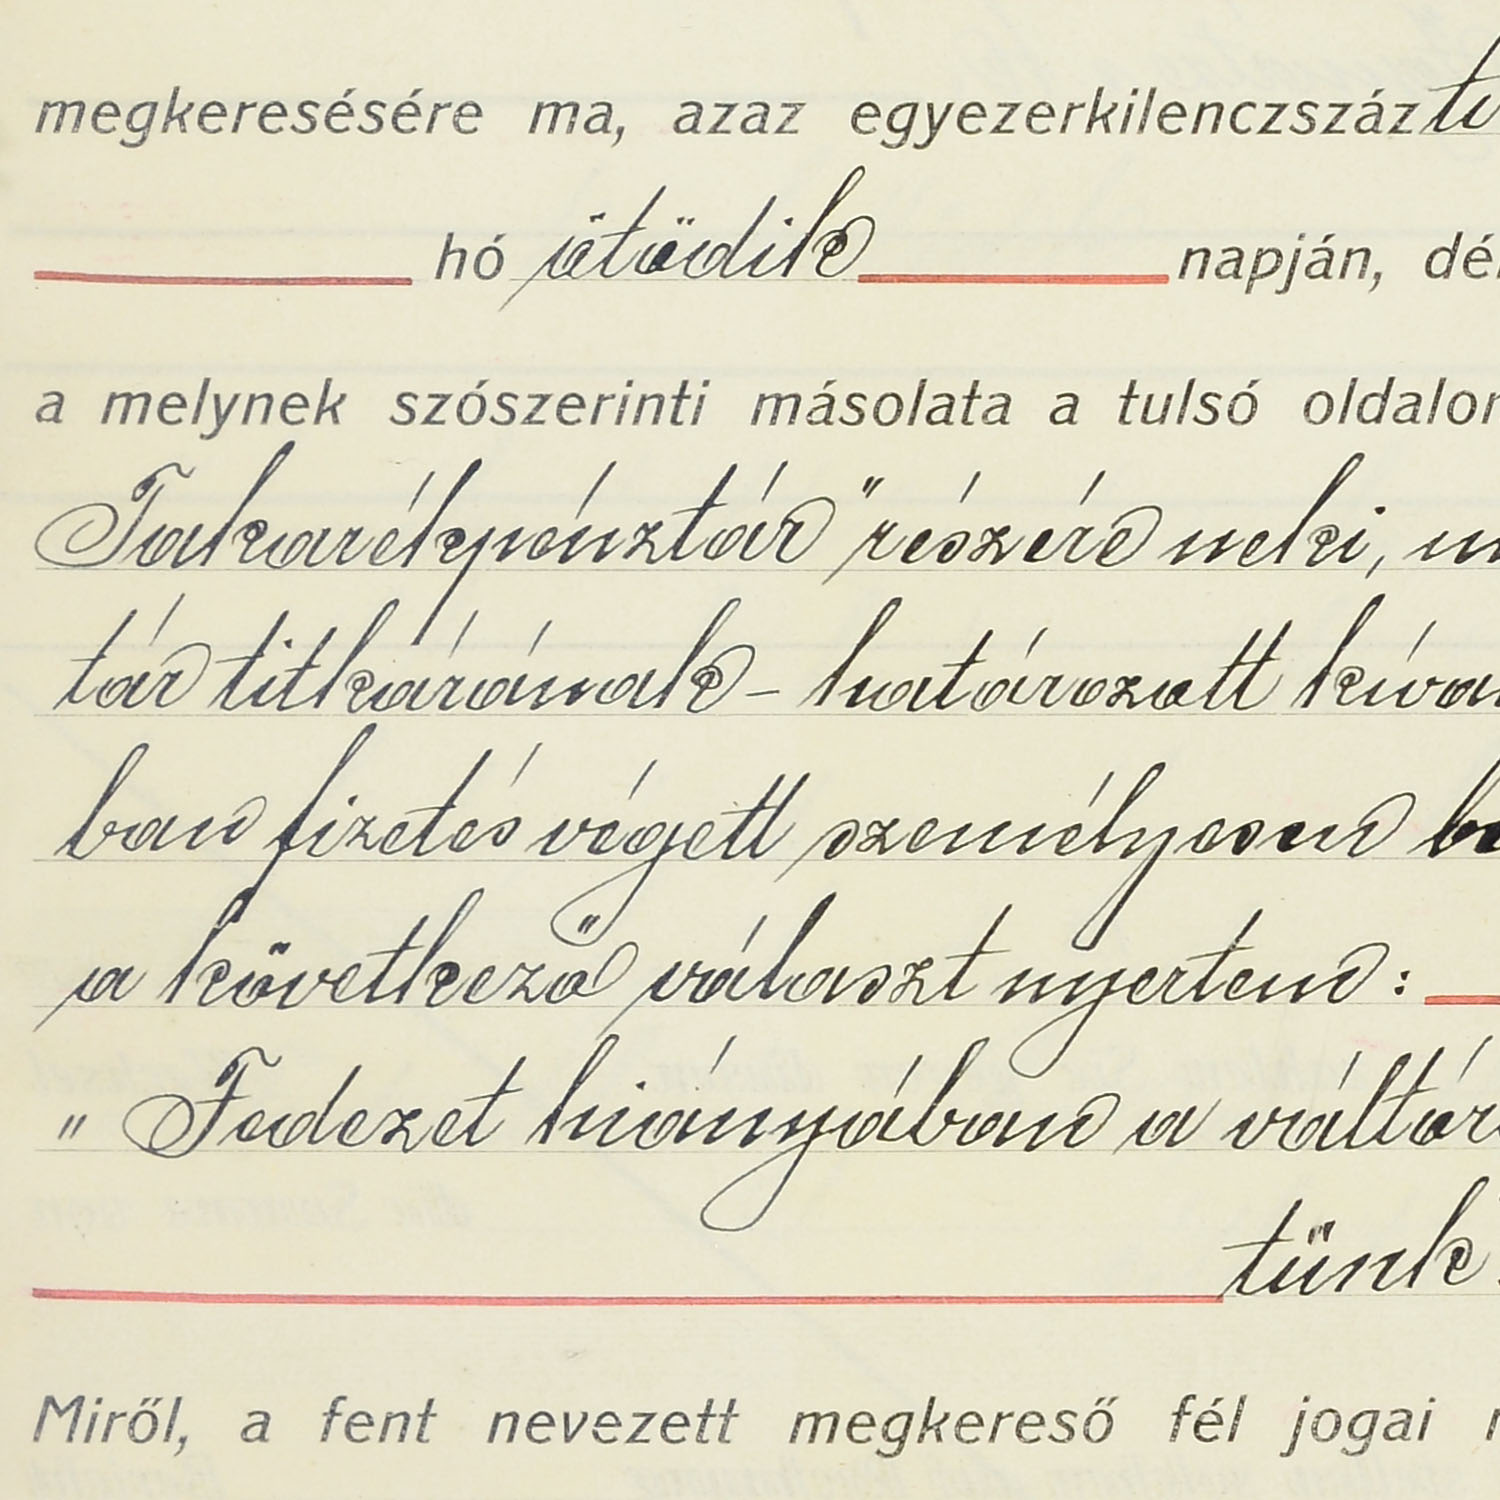 megkeresésére ma, azaz egyezerkilenczszáz
hó ötödik napján,
a melynek szószerinti másolata a tulsó
Takarékpénztár" részére neki,
tár titkárának - határozott
ban fizetés végett személyesen
a következő választ nyertem:
" Fedezet hiányában a
tünk
Miről, a fent nevezett megkereső fél jogai